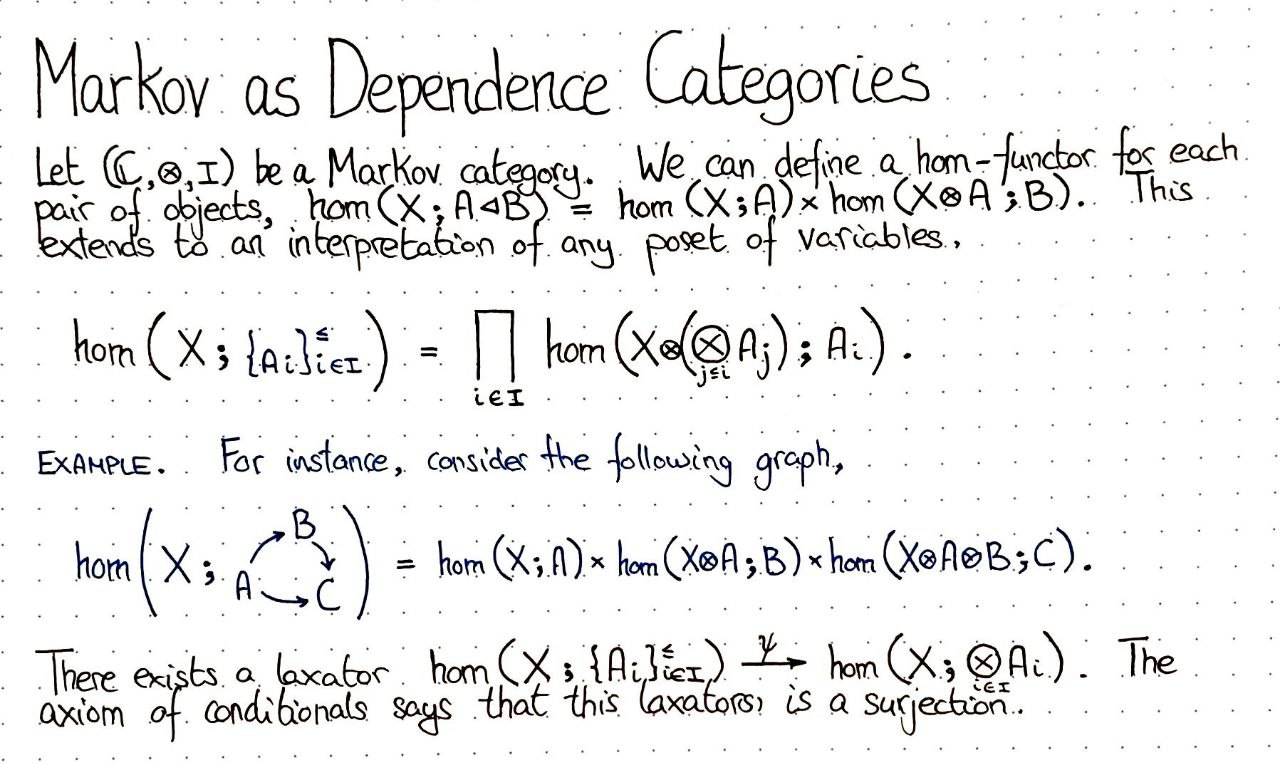 Markov as Dependence Categories
Let (ℂ,⊗,I) be a Markov category. We can define a hom-functor for each
pair of objects, hom(X; A◁B) = hom (X;A) × hom (X⊗A;B). This
extends to an interpretation of any poset of variables.
hom(X; {A_i}^≤_{i∈I}) = ∏_{i∈I} hom(X⊗(⊗_{j≤i} A_j); A_i).
EXAMPLE. For instance, consider the following graph,
hom(X; A → B, B → C, A → C) = hom(X;A) × hom(X⊗A;B) × hom(X⊗A⊗B;C).
There exists a laxator hom(X; {A_i}^≤_{i∈I}) —ψ→ hom(X; ⊗_{i∈I} A_i). The
axiom of conditionals says that this laxators, is a surjection.